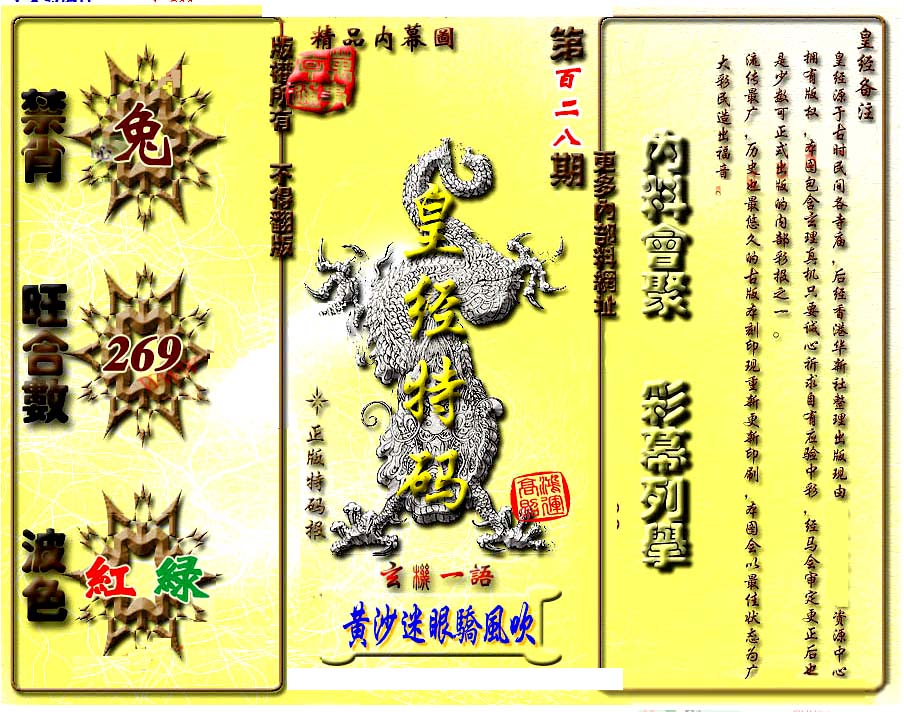 皇经备注
皇经源于古时民间各寺庙,后经香港华新社整理出版现由 资源中心
拥有版权,本图包含玄理真机只要诚心祈求自有应验中彩,经马会审定更正后也
是少数可正式出版的内部彩报之一。
流传最广,历史也最悠久的古版本刻印现重新更新印刷,本图会以最佳状态为广
大彩民造出福音
内料會聚 彩幕列舉
更多内部料網址
第百二八期
精品内幕圖
版權所有 不得翻版
皇经特码
正版特码报
鴻運
高照
玄機一語
黃沙迷眼驕風吹
禁肖
兔
旺合數
269
波色
紅 綠